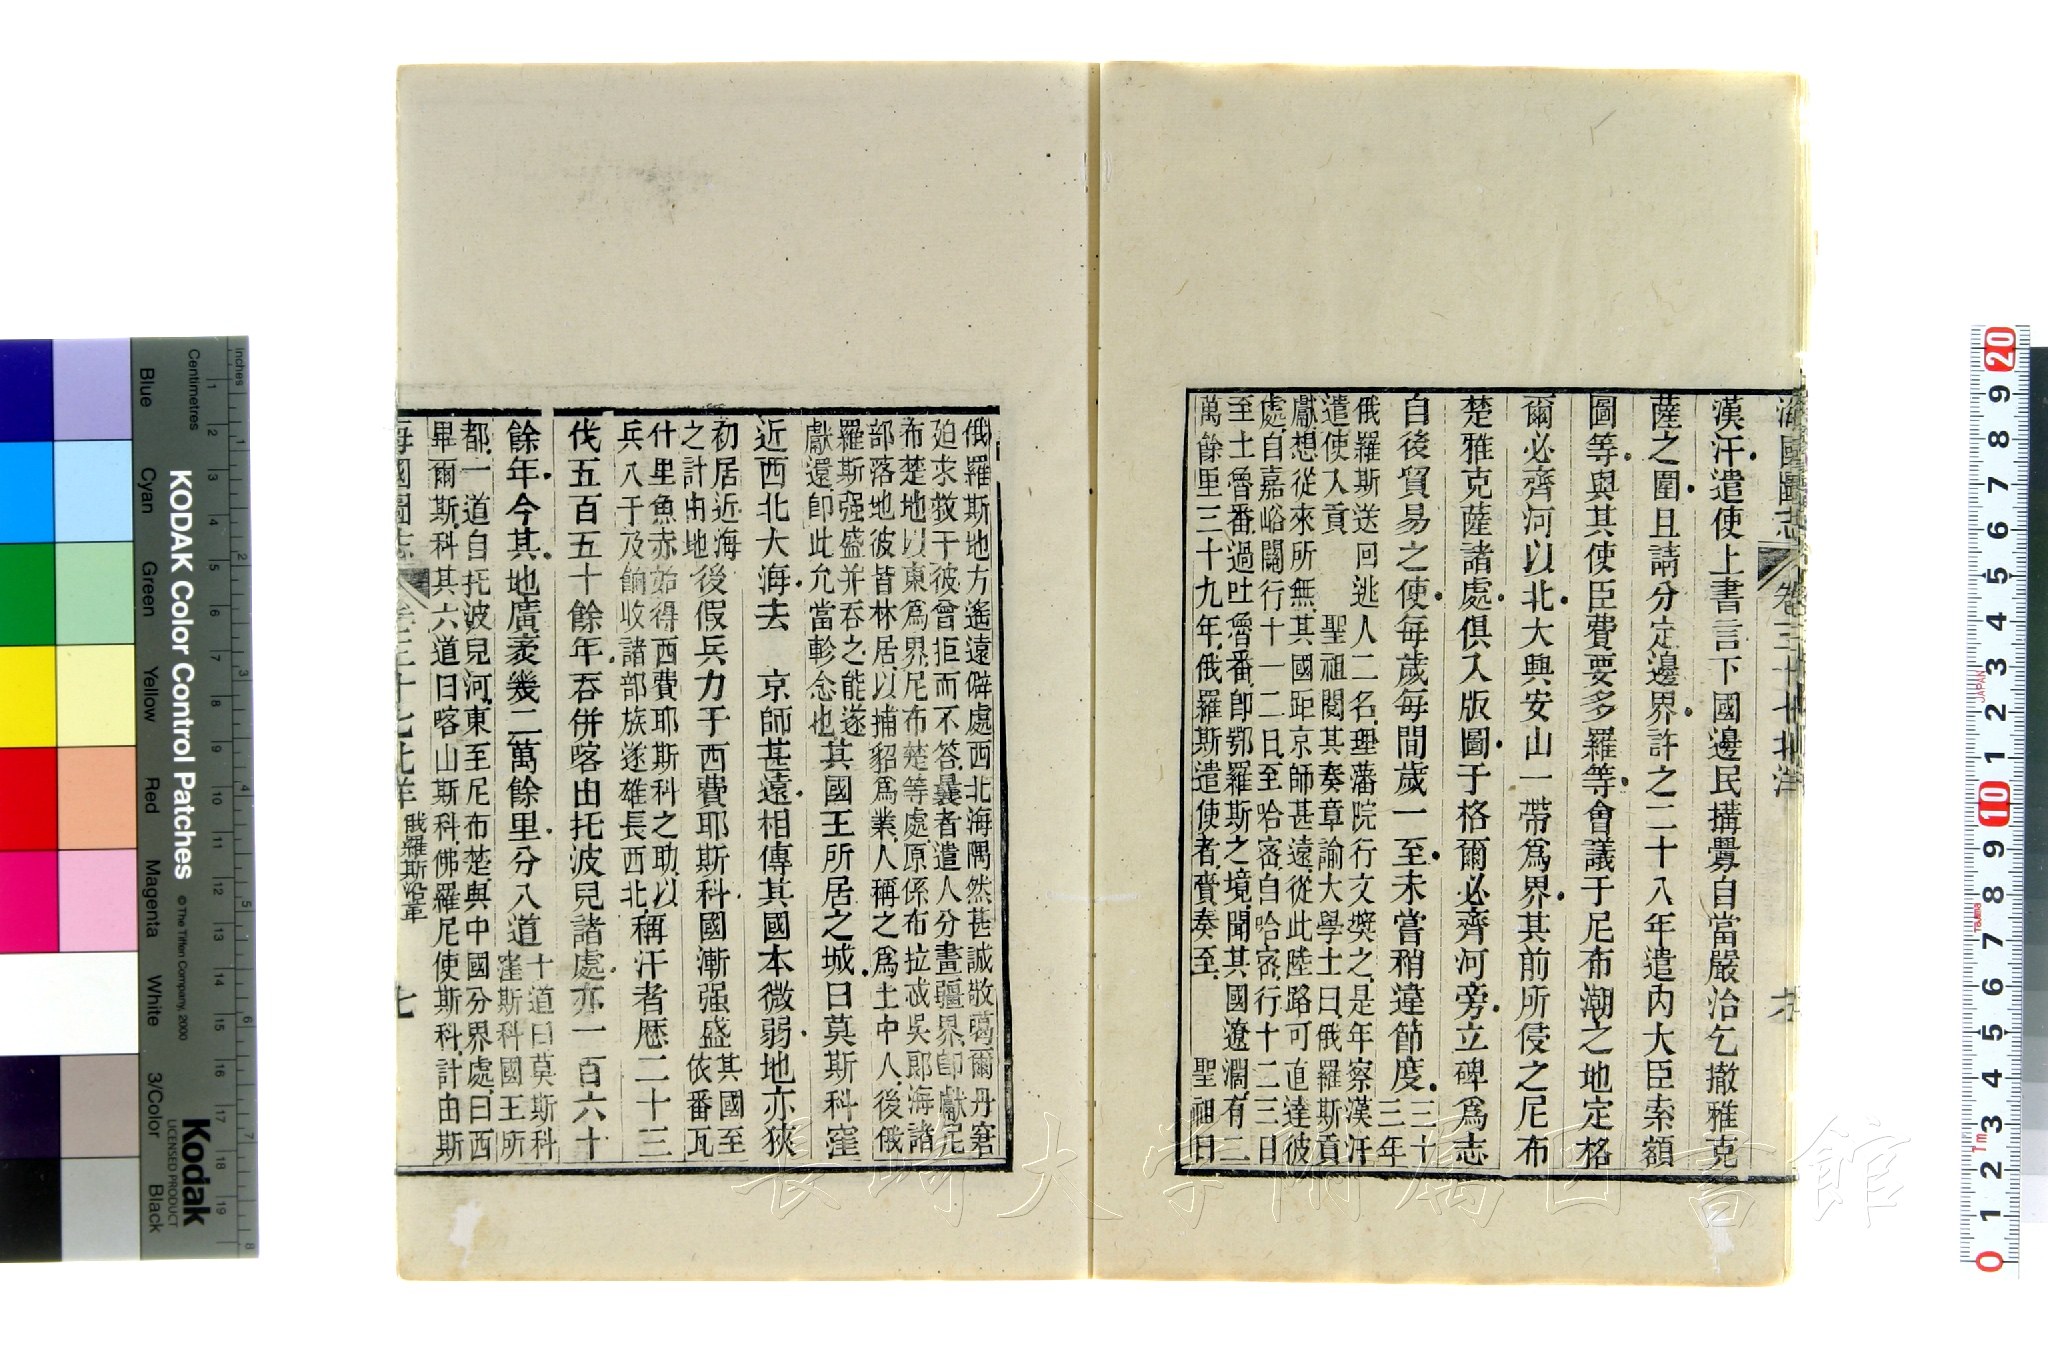 海國圖志 卷三十七 北洋 六
漢汗遣使上書言下國邊民搆釁自當嚴治乞撤雅克
薩之圍且請分定邊界許之二十八年遣內大臣索額
圖等與其使臣費要多羅等會議于尼布潮之地定格
爾必齊河以北大興安山一帶爲界其前所侵之尼布
楚雅克薩諸處俱入版圖于格爾必齊河旁立碑爲志
自後貿易之使每歲每間歲一至未嘗稍違節度三十
三年
俄羅斯送回逃人二名理藩院行文奬之是年察漢汗
遣使入貢 聖祖閱其奏章諭大學士曰俄羅斯貢
獻想從來所無其國距京師甚遠從此陸路可直達彼
處自嘉峪關行十一二日至哈密自哈密行十二三日
至土魯番過吐魯番卽鄂羅斯之境聞其國遼濶有二
萬餘里三十九年俄羅斯遣使者賫奏至 聖祖曰
俄羅斯地方遙遠僻處西北海隅然甚誠敬噶爾丹窘
廹求救于彼曾拒而不答曩者遣人分畫疆界卽獻尼
布楚地以東爲界尼布楚等處原係布拉忒吳郞海諸
部落地彼皆林居以捕貂爲業人稱之爲土中人後俄
羅斯强盛并吞之能遂
獻還卽此允當軫念也
其國王所居之城曰莫斯科窪
近西北大海去 京師甚遠相傳其國本微弱地亦狹
初居近海
之計由地
後假兵力于西費耶斯科國漸强盛
其國至
依番瓦
什里魚赤始得西費耶斯科之助以
兵八千及餉收諸部族遂雄長西北
稱汗者歷二十三
伐五百五十餘年吞併喀由托波兒諸處亦一百六十
餘年今其地廣袤幾二萬餘里分八道
十道曰莫斯科
窪斯科國王所
都一道自托波兒河東至尼布楚與中國分界處曰西
畢爾斯科其六道曰喀山斯科佛羅尼使斯科計由斯
海國圖志 卷三十七 北洋 俄羅斯沿革 七
長崎大学附属図書館
KODAK Color Control Patches
© The Tiffen Company, 2000
Kodak
LICENSED PRODUCT
Inches
Centimetres
Blue
Cyan
Green
Yellow
Red
Magenta
White
3/Color
Black
JAPAN
Tajima